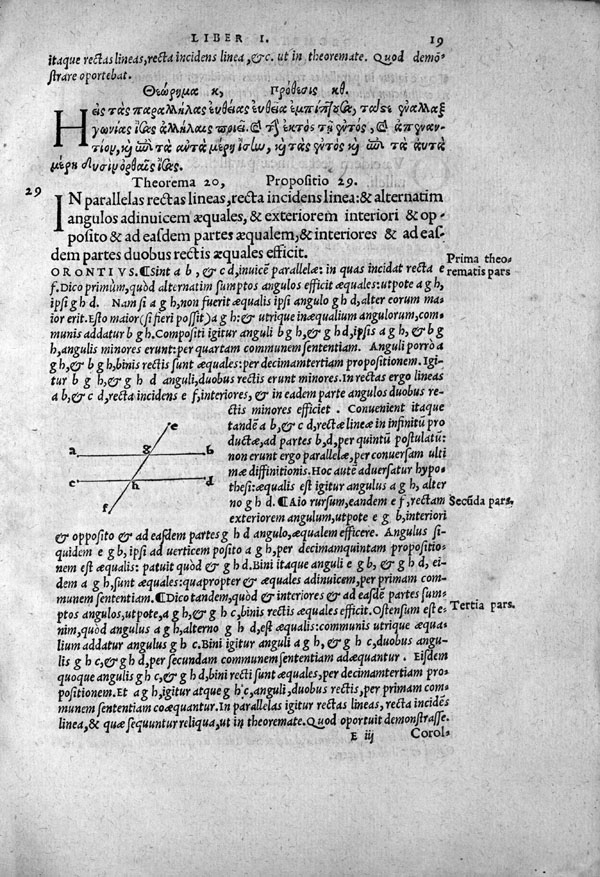 LIBER I. 19
itaque rectas lineas, recta incidens linea, &c. ut in theoremate. Quod demõ
strare oportebat.
Θεώρημα κ, πρόθεσις κθ.
Η εἰς τὰς παραλλήλας εὐθείας εὐθεῖα ἐμπίπτουσα, τάς τε ἐναλλὰξ
γωνίας ἴσας ἀλλήλαις ποιεῖ. καὶ τὴν ἐκτὸς τῇ ἐντὸς, καὶ ἀπεναν-
τίον, καὶ ἐπὶ τὰ αὐτὰ μέρη ἴσην, καὶ τὰς ἐντὸς καὶ ἐπὶ τὰ αὐτὰ
μέρη δυσὶν ὀρθαῖς ἴσας.
Theorema 20, Propositio 29.
29 IN parallelas rectas lineas, recta incidens linea: & alternatim
angulos adinuicem æquales, & exteriorem interiori & op-
posito & ad easdem partes æqualem, & interiores & ad eas-
dem partes duobus rectis æquales efficit.
ORONTIVS. ¶Sint a b, & c d, inuicẽ parallelæ: in quas incidat recta e
Prima theo-
rematis pars
f. Dico primùm, quòd alternatim sumptos angulos efficit æquales: utpote a g h,
ipsi g h d. Nam si a g h, non fuerit æqualis ipsi angulo g h d, alter eorum ma-
ior erit. Esto maior (si fieri possit) a g h: & utrique inæqualium angulorum, com-
munis addatur b g h. Compositi igitur anguli b g h, & g h d, ipsis a g h, & b g
h, angulis minores erunt: per quartam communem sententiam. Anguli porrò a
g h, & b g h, binis rectis sunt æquales: per decimamtertiam propositionem. Igi-
tur b g h, & g h d anguli, duobus rectis erunt minores. In rectas ergo lineas
a b, & c d, recta incidens e f, interiores, & in eadem parte angulos duobus re-
ctis minores efficiet. Conuenient itaque
tandẽ a b, & c d, rectæ lineæ in infinitũ pro
ductæ, ad partes b, d, per quintũ postulatũ:
non erunt ergo parallelæ, per conuersam ulti
mæ diffinitionis. Hoc autẽ aduersatur hypo-
thesi: æqualis est igitur angulus a g h, alter
no g h d. ¶Aio rursum, eandem e f, rectam
Secũda pars.
exteriorem angulum, utpote e g b, interiori
e
a g b
c h d
f
& opposito & ad easdem partes g h d angulo, æqualem efficere. Angulus si-
quidem e g b, ipsi ad uerticem posito a g h, per decimamquintam propositio-
nem est æqualis: patuit quòd & g h d. Bini itaque anguli e g b, & g h d, ei-
dem a g h, sunt æquales: quapropter & æquales adinuicem, per primam com-
munem sententiam. ¶Dico tandem, quòd & interiores & ad easdẽ partes sum-
ptos angulos, utpote, a g h, & g h c, binis rectis æquales efficit. Ostensum est e-
Tertia pars.
nim, quòd angulus a g h, alterno g h d, est æqualis: communis utrique æqua-
lium addatur angulus g h c. Bini igitur anguli a g h, & g h c, duobus angu-
lis g h c, & g h d, per secundam communem sententiam adæquantur. Eisdem
quoque angulis g h c, & g h d, bini recti sunt æquales, per decimamtertiam pro-
positionem. Et a g h, igitur atque g h c, anguli, duobus rectis, per primam com-
munem sententiam coæquantur. In parallelas igitur rectas lineas, recta incidẽs
linea, & quæ sequuntur reliqua, ut in theoremate. Quod oportuit demonstrasse.
E iij Corol-